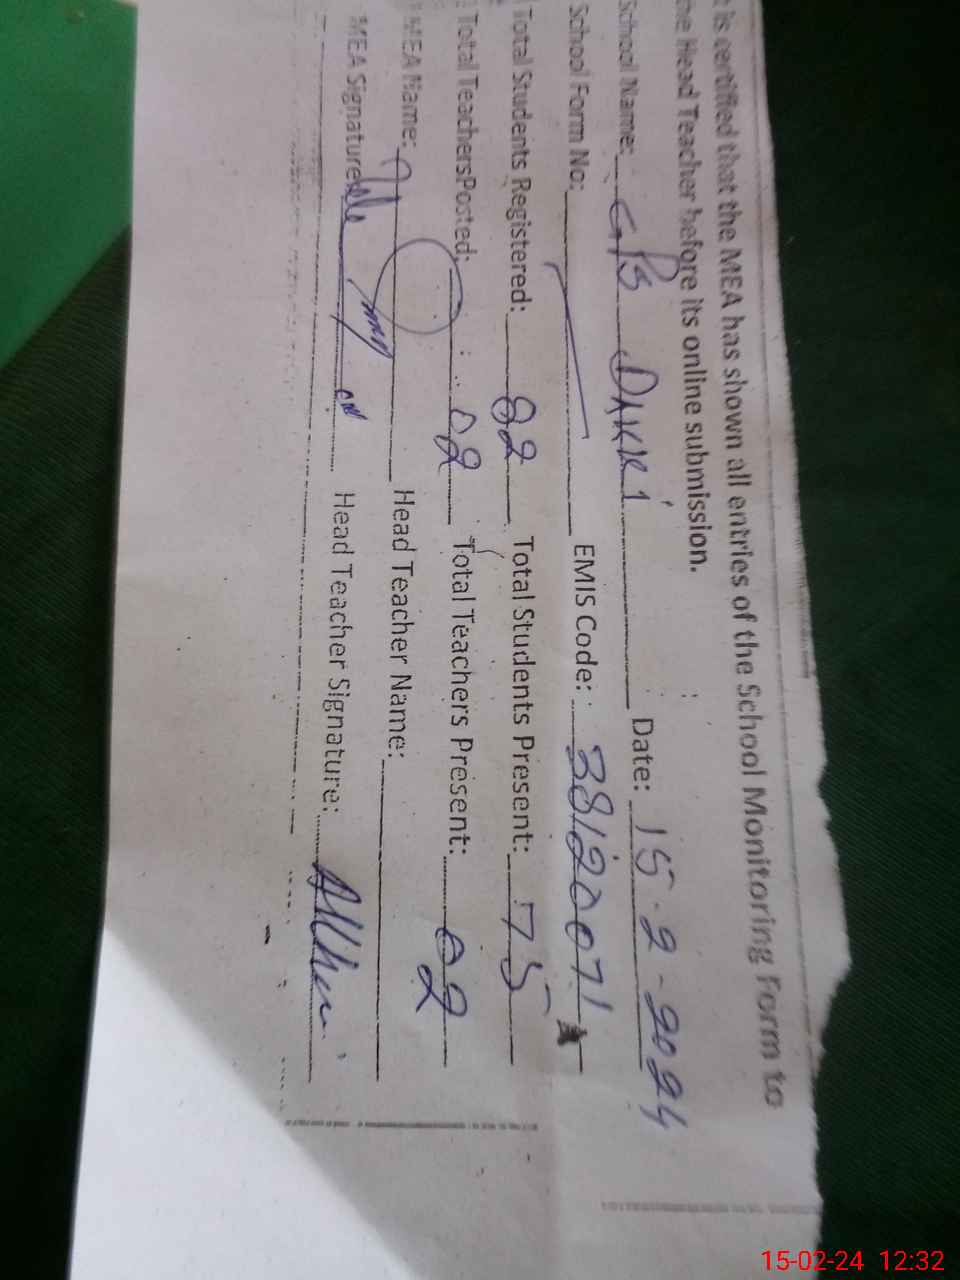 t is certified that the MEA has shown all entries of the School Monitoring Form to
he Head Teacher before its online submission.
School Name: GPS DAKRI Date: 15-2-2024
School Form No: EMIS Code: 38120071
Total Students Registered: 82 Total Students Present: 75
Total TeachersPosted: 02 Total Teachers Present: 02
MEA Name: Head Teacher Name:
MEA Signature Head Teacher Signature:
15-02-24 12:32